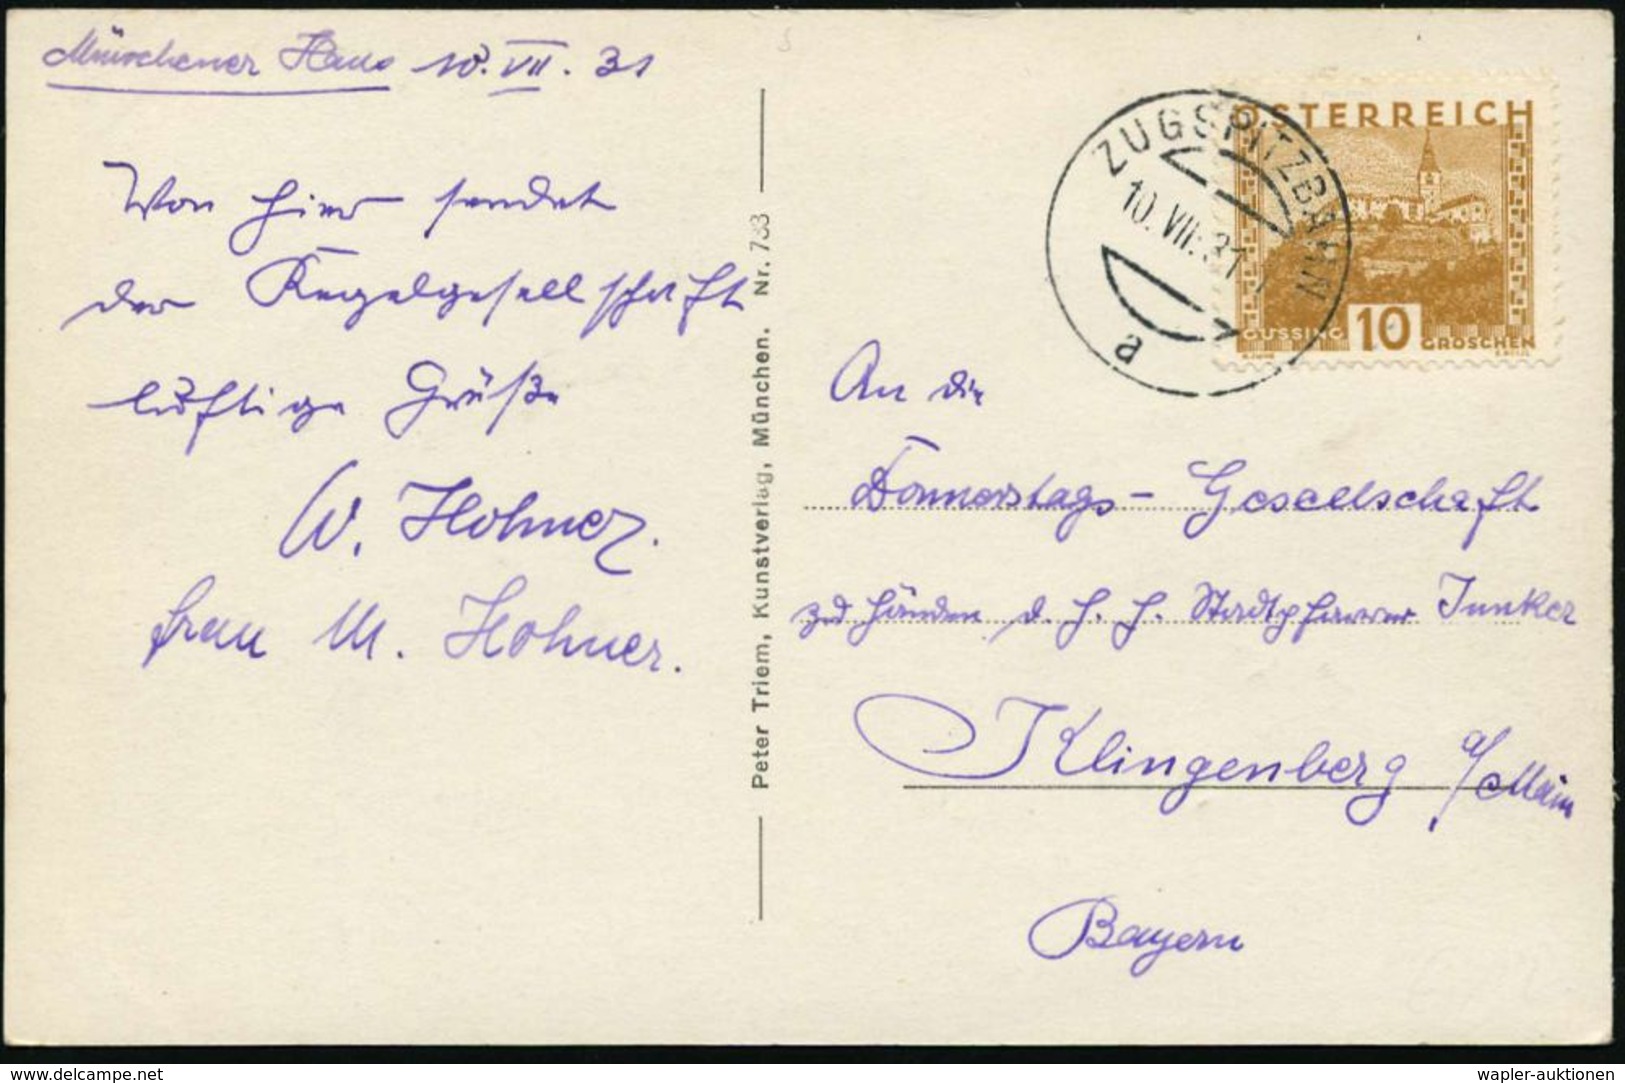 Münchener Haus 10. VII. 31
Von hier sendet
der Kegelgesellschaft
luftige Grüße
W. Hohner.
Frau M. Hohner.
Peter Triem, Kunstverlag, München. Nr. 733
ZUGSPITZBAHN
10. VII. 31
a
ÖSTERREICH
GÜSSING 10 GROSCHEN
An die
Donnerstags-Gesellschaft
zu Händen d. H. H. Stadtpfarrer Junker
Klingenberg a/Main
Bayern
www.delcampe.net
wapler-auktionen